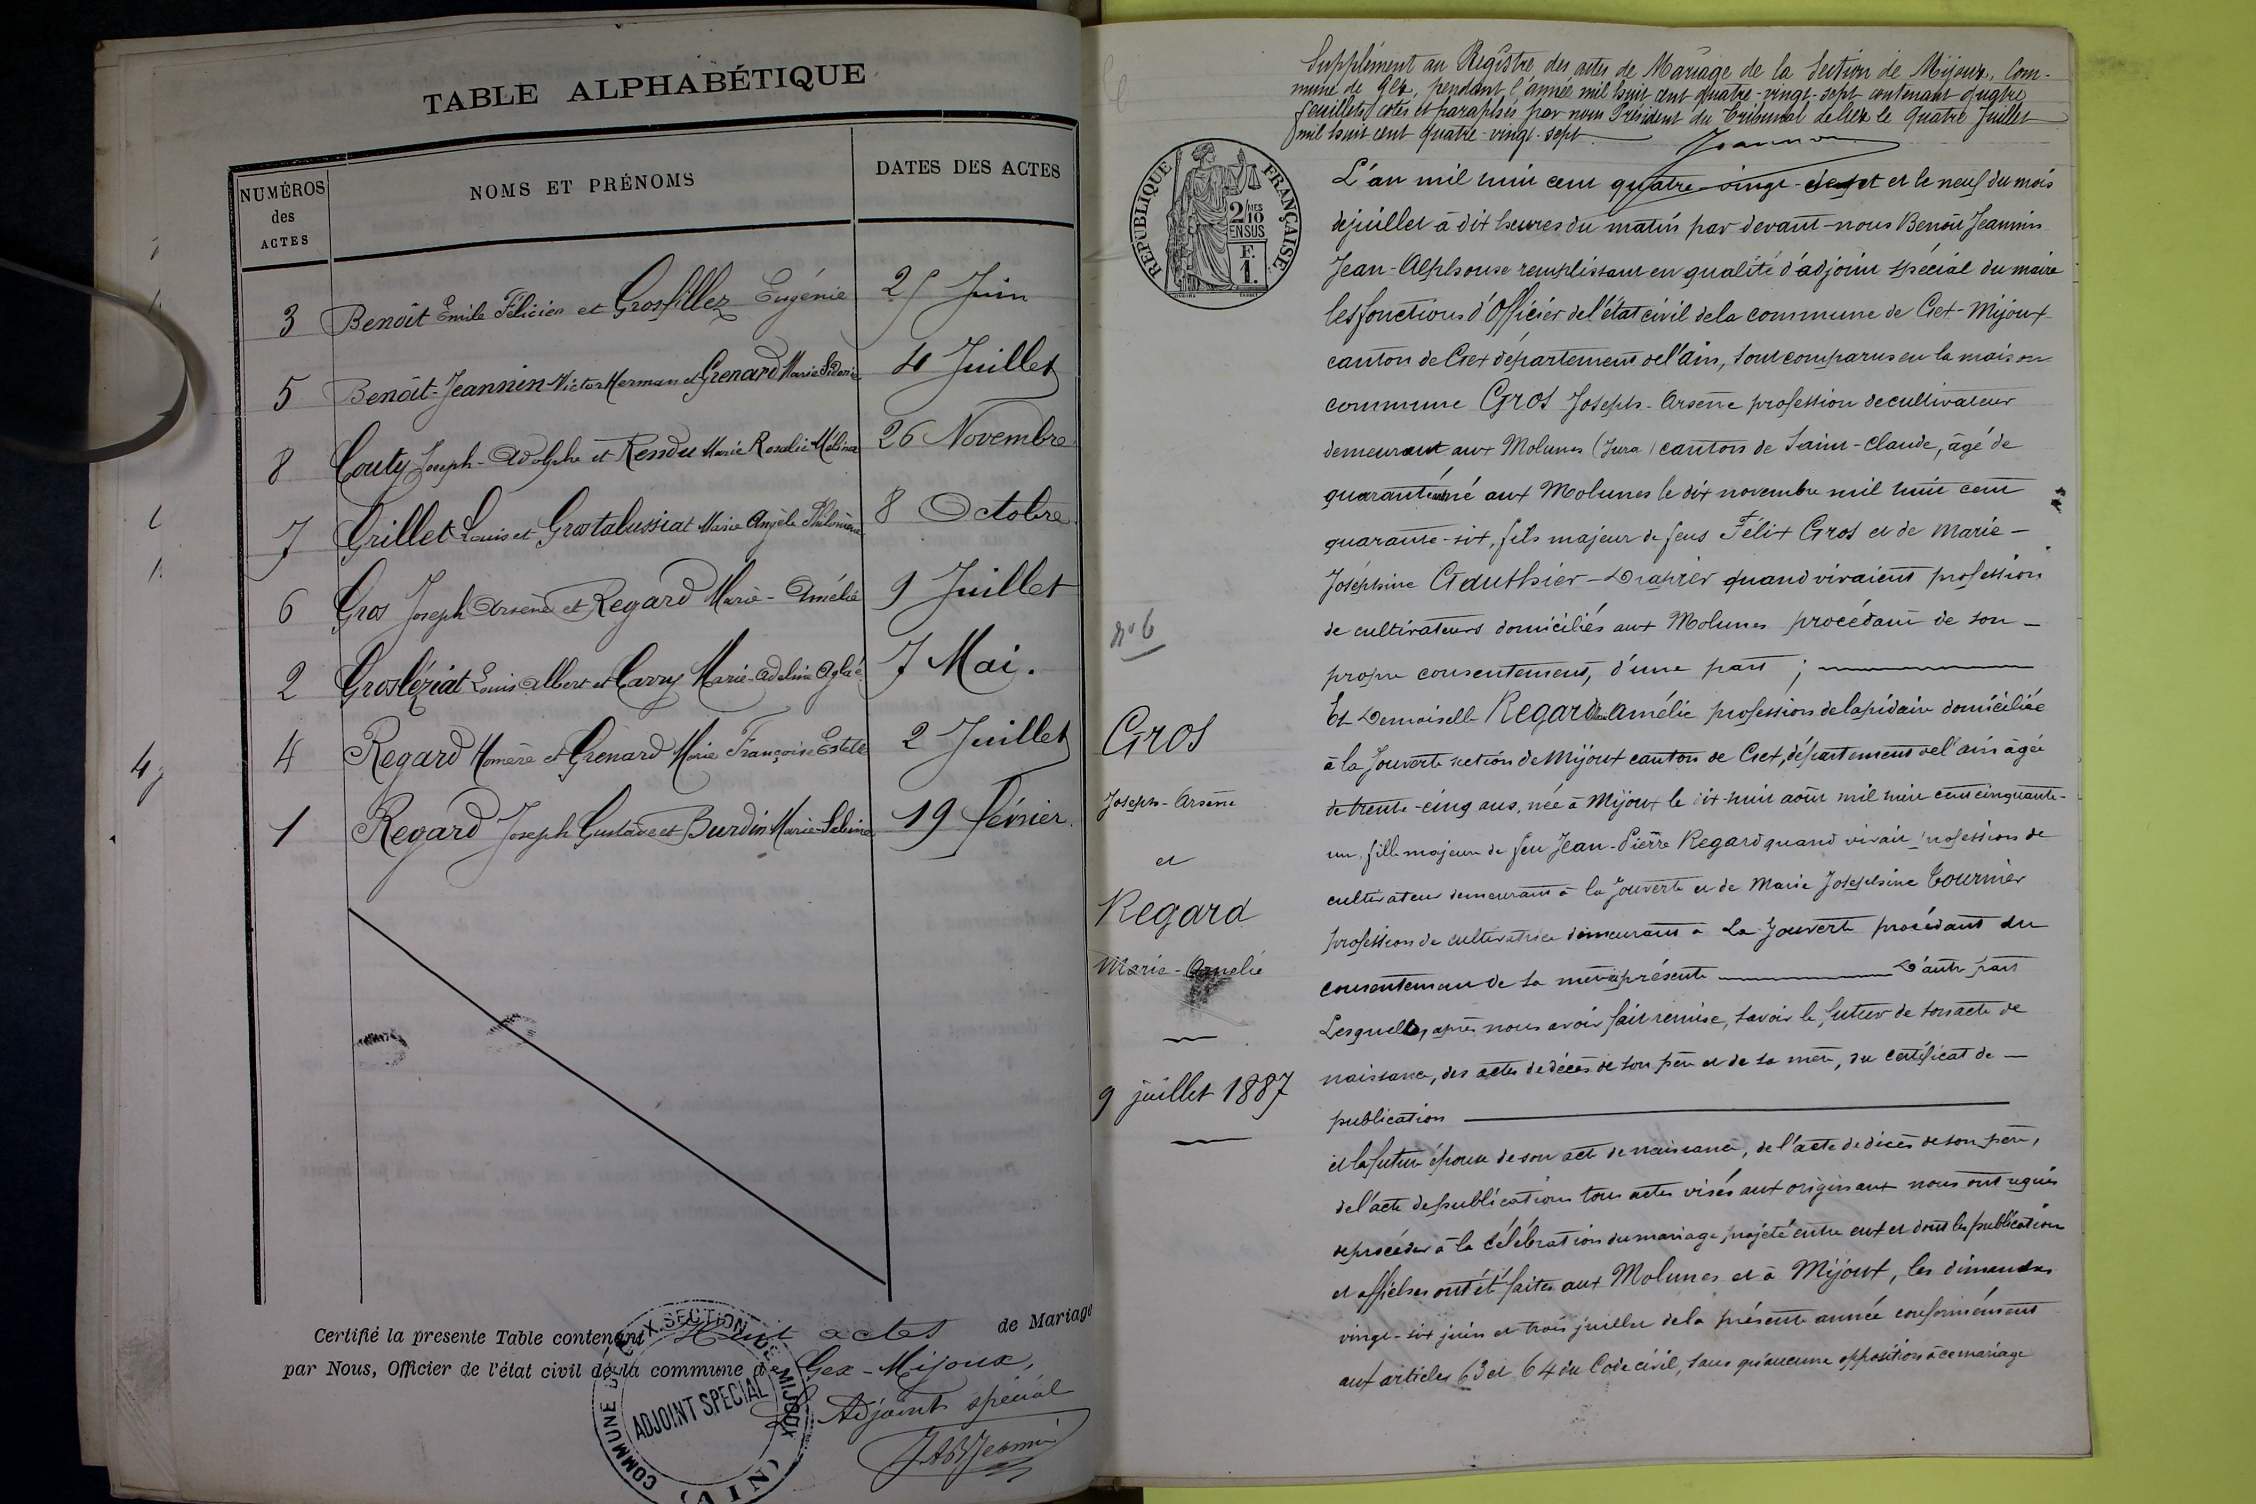 TABLE ALPHABÉTIQUE
NUMÉROS des ACTES
NOMS ET PRÉNOMS
DATES DES ACTES
3 Benoit Emile Félicien et Grosfillez Eugénie 25 Juin
5 Benoît-Jeannin Victor Herman et Grenard Marie Sidonie 4 Juillet
8 Couty Joseph-Adolphe et Rendu Marie Rosalie Mélina 26 Novembre
7 Grillet Louis et Grostabussiat Marie Angèle Philomène 8 Octobre
6 Gros Joseph Arsène et Regard Marie-Amélie 9 Juillet
2 Grosléziat Louis Albert et Carry Marie-Adeline Aglaé 7 Mai.
4 Regard Homère et Grenard Marie Françoise Estelle 2 Juillet
1 Regard Joseph Gustave et Burdin Marie-Sabine 19 février
Certifié la presente Table contenant Huit actes de Mariage
par Nous, Officier de l'état civil de la commune de Gex-Mijoux,
L'Adjoint spécial
COMMUNE DE GEX SECTION DE MIJOUX
ADJOINT SPECIAL
(AIN)
Supplément au Registre des actes de Mariage de la Section de Mijoux, Com-
mune de Gex, pendant l'année mil huit cent quatre-vingt-sept contenant quatre
feuillets cotés et paraphés par nous Président du Tribunal de Gex le quatre Juillet
mil huit cent quatre-vingt-sept
Jeannon
RÉPUBLIQUE FRANÇAISE
2/10 MES
EN SUS
F.
1.
L'an mil huit cent quatre-vingt-sept et le neuf du mois
de juillet à dix heures du matin par devant-nous Benoit Jeannin
Jean-Alphonse remplissant en qualité d'adjoint spécial du maire
les fonctions d'Officier de l'état civil de la commune de Gex-Mijoux
canton de Gex département de l'ain, sont comparus en la maison
commune Gros Joseph-Arsène profession de cultivateur
demeurant aux Molunes (Jura) canton de Saint-Claude, âgé de
quarante né aux Molunes le dix novembre mil huit cent
quarante-six, fils majeur de feus Félix Gros et de Marie-
Joséphine Gauthier-Draprer quand vivaient profession
de cultivateurs domiciliés aux Molunes procédant de son
propre consentement, d'une part;
Et Demoiselle Regard Marie Amélie profession de lapidaire domiciliée
à la Jouverte section de Mijoux canton de Gex, département de l'ain âgée
de trente-cinq ans, née à Mijoux le dix-huit août mil huit cent cinquante-
un, fille majeure de feu Jean-Pierre Regard quand vivait profession de
cultivateur demeurant à la Jouverte et de Marie Joséphine Tournier
profession de cultivatrice demeurant à La Jouverte procédant du
consentement de sa mère présente D'autre part
Lesquels, après nous avoir fait remise, savoir le futur de son acte de
naissance, des actes de décès de son père et de sa mère, du certificat de
publication
et la future épouse de son acte de naissance, de l'acte de décès de son père,
de l'acte de publication tous actes visés aux originaux nous ont requis
de procéder à la célébration du mariage projeté entre eux et dont les publication
et affiches ont été faites aux Molunes et à Mijoux, les dimanches
vingt-six juin et trois juillet de la présente année conformément
aux articles 63 et 64 du Code civil, sans qu'aucune opposition à ce mariage
n° 6
Gros
Joseph-Arsène
et
Regard
Marie-Amélie
9 juillet 1887